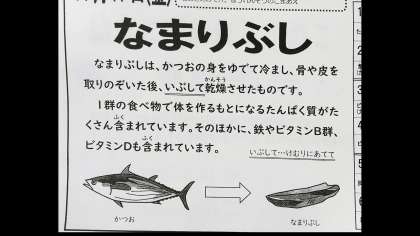 なまりぶし
なまりぶしは、かつおの身をゆでて冷まし、骨や皮を
かんそう
取りのぞいた後、いぶして乾燥させたものです。
1群の食べ物で体を作るもとになるたんぱく質がた
ふく
くさん含まれています。そのほかに、鉄やビタミンB群、
ふく
ビタミンDも含まれています。
いぶして…けむりにあてて
かつお
なまりぶし